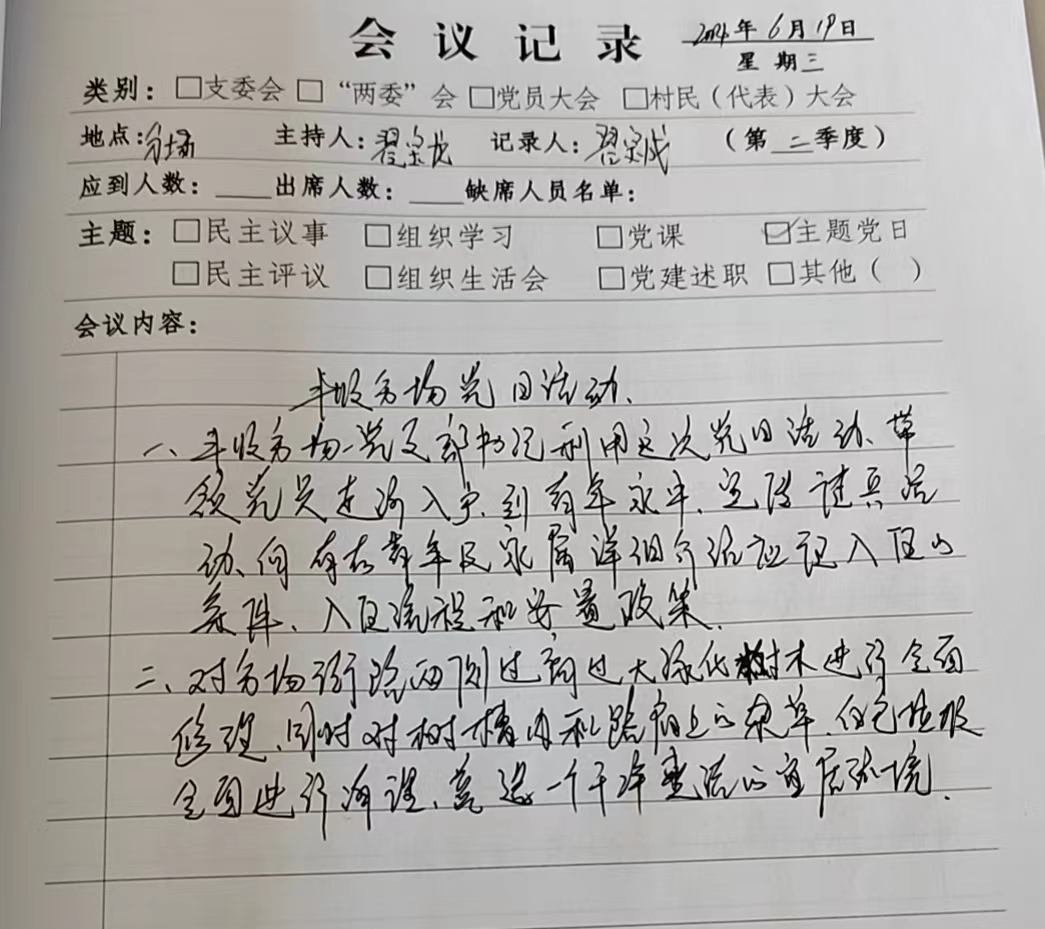 会议记录 2024年6月19日
星期三
类别：□支委会 □“两委”会 □党员大会 □村民（代表）大会
地点：分场 主持人：翟 记录人：翟 （第二季度）
应到人数：____出席人数：____缺席人员名单：
主题：□民主议事 □组织学习 □党课 ☑主题党日
□民主评议 □组织生活会 □党建述职 □其他（ ）
会议内容：
丰收分场党日活动.
一、丰收分场党支部书记利用这次党日活动、带
领党员走访入户、到青年家中、宣传征兵活
动、向青年及家属详细介绍应征入伍的
条件、入伍流程和安置政策.
二、对分场街路两侧过高过大绿化树木进行全面
修理、同时对树墙内和路肩上的杂草、白色垃圾
全面进行清理、营造一个干净整洁的宜居环境.